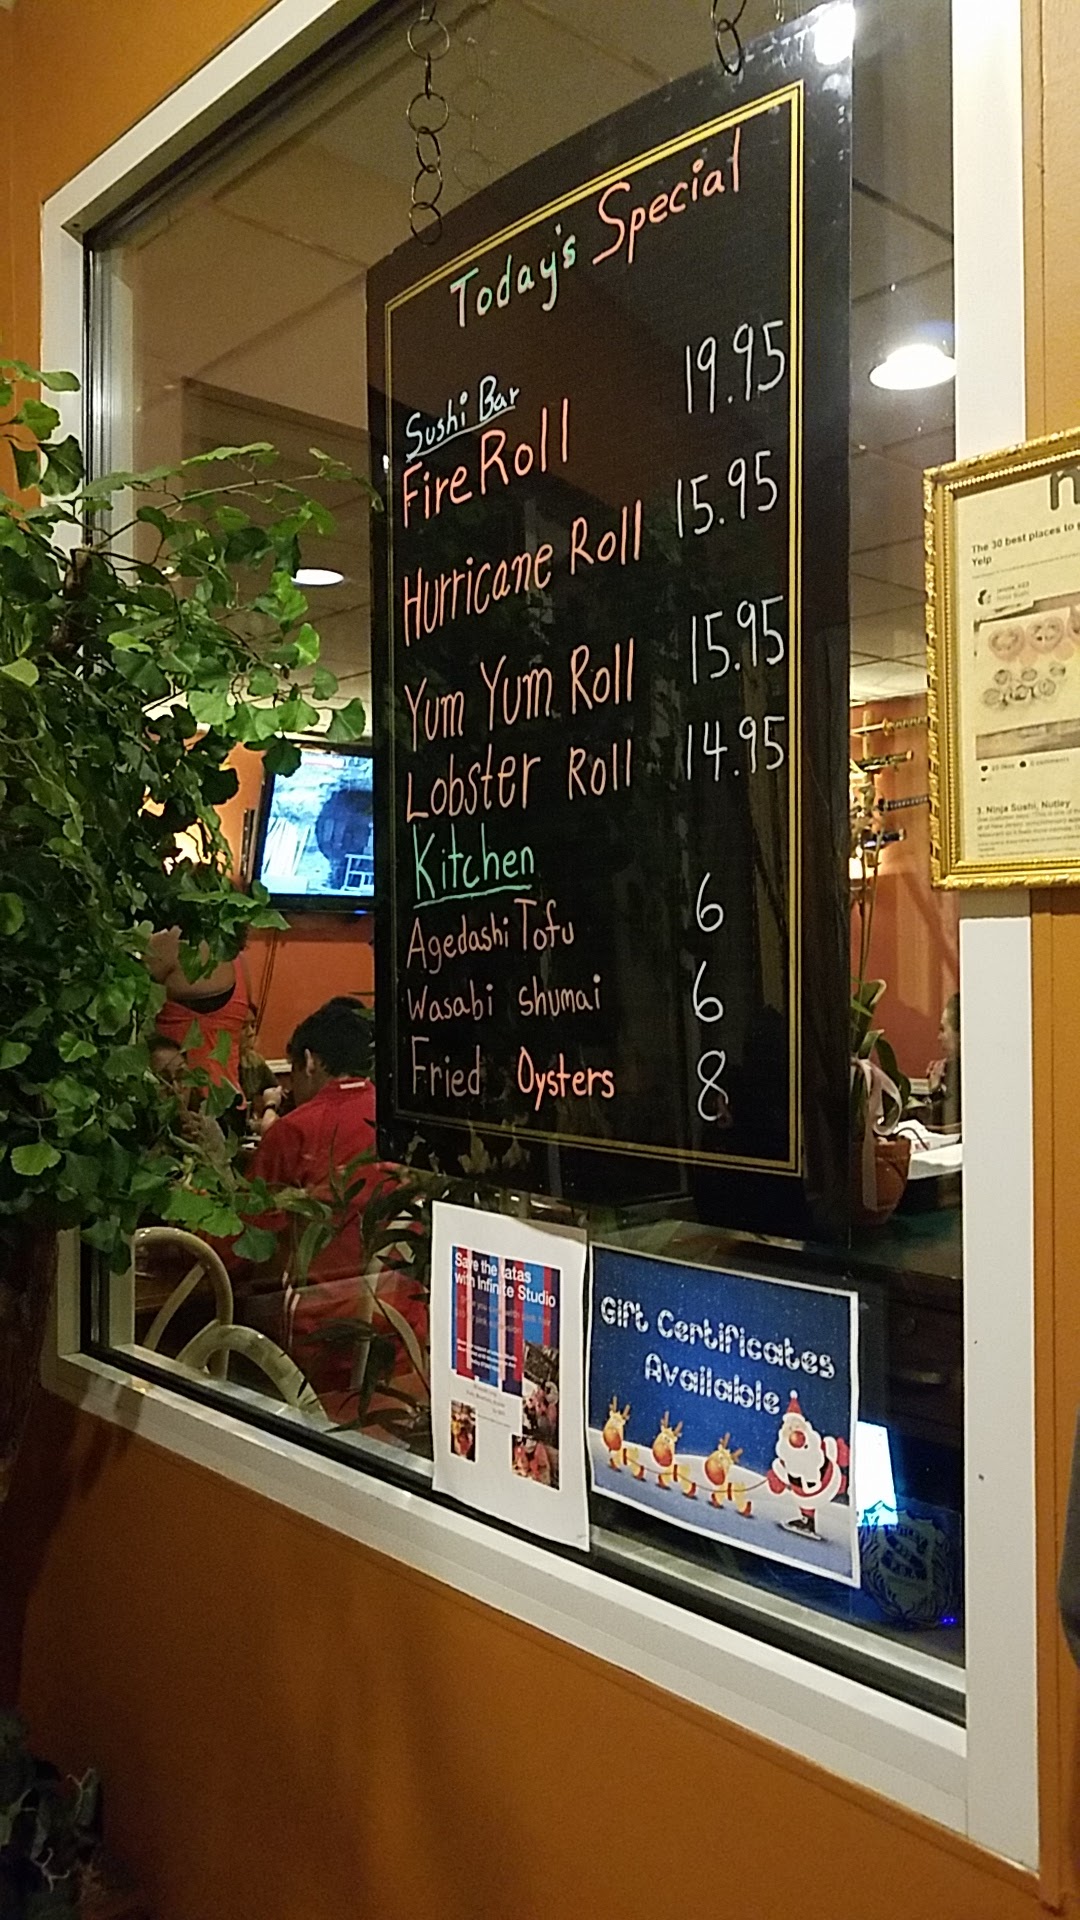 Today's Special
Sushi Bar
Fire Roll 19.95
Hurricane Roll 15.95
Yum Yum Roll 15.95
Lobster Roll 14.95
Kitchen
Agedashi Tofu 6
Wasabi Shumai 6
Fried Oysters 8
The 30 best places to
Yelp
3. Ninja Sushi, Nutley
Save the tatas
with Infinite Studio
Gift Certificates
Available